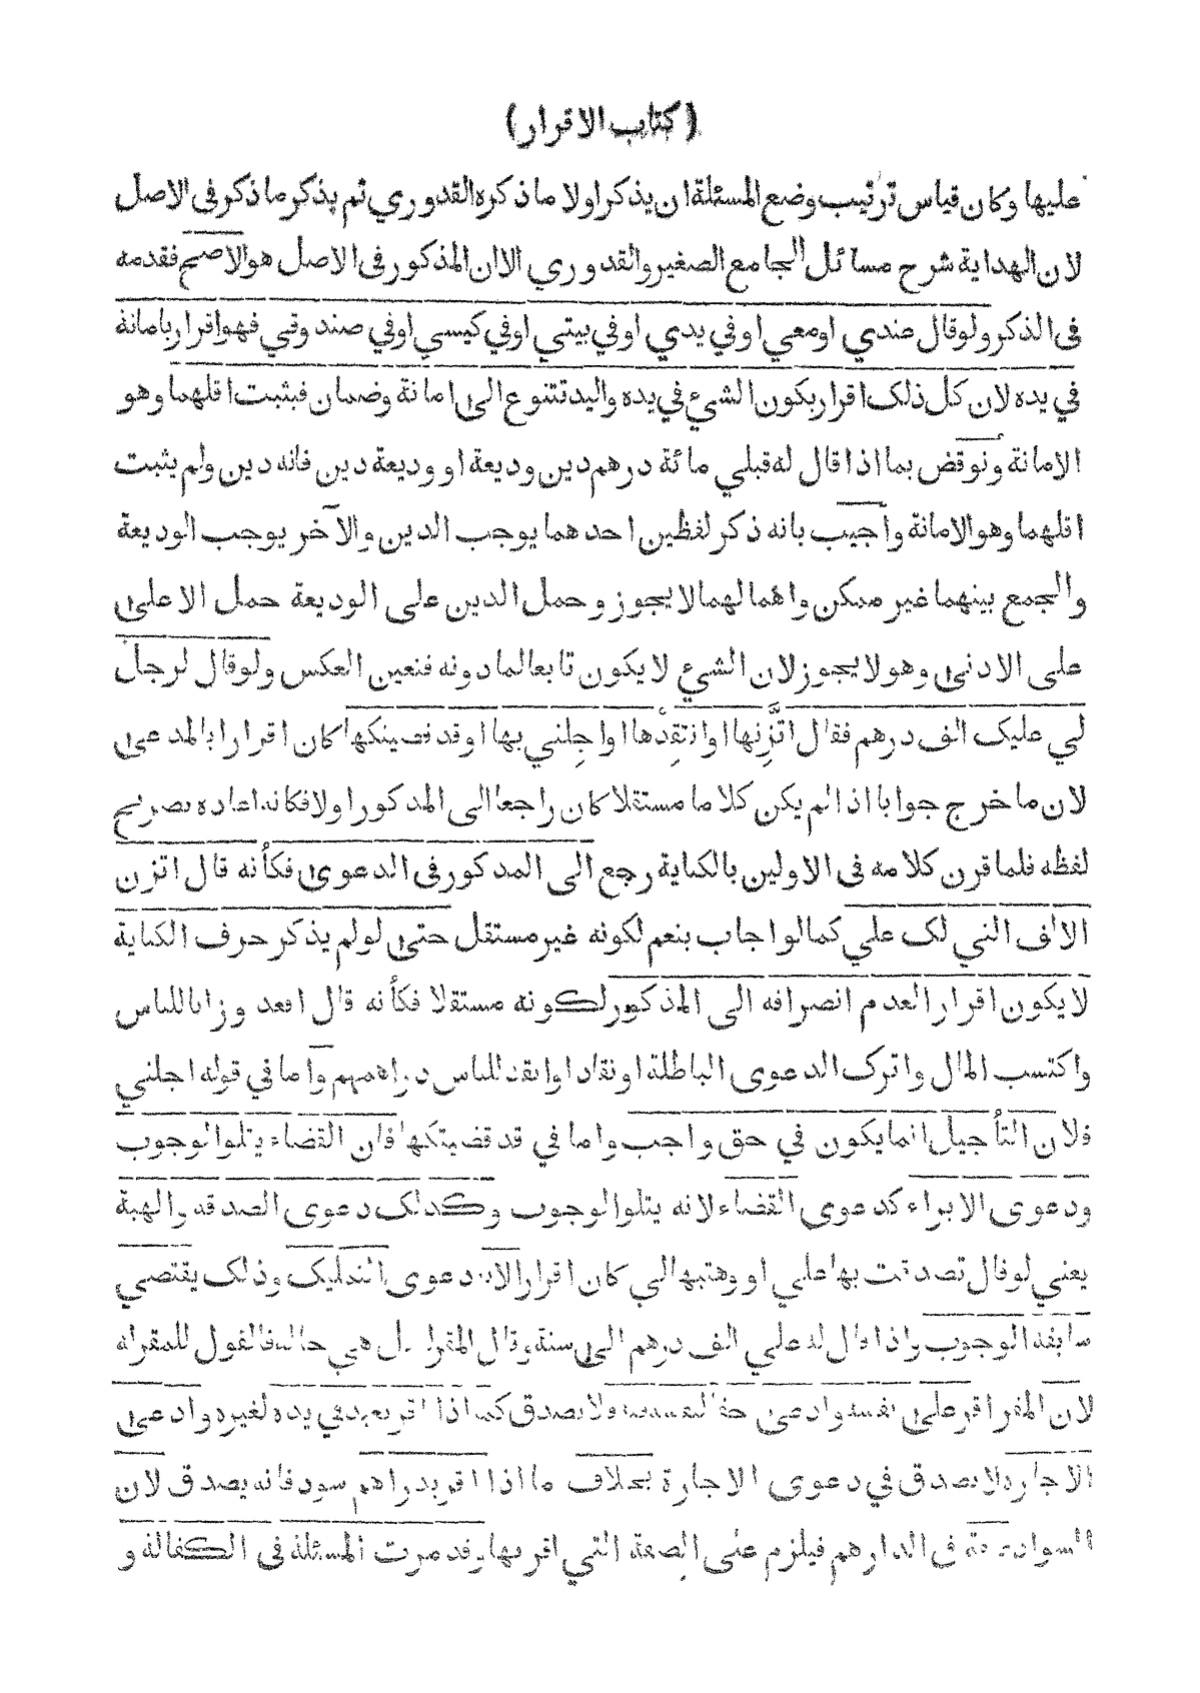 (كتاب الاقرار)
عليها وكان قياس ترتيب وضع المسئلة ان يذكر اولا ما ذكره القدوري ثم يذكر ما ذكر في الاصل
لان الهداية شرح مسائل الجامع الصغير والقدوري الا ان المذكور في الاصل هو الاصح فقدمه
في الذكر ولو قال عندي او معي او في يدي او في بيتي او في كيسي او في صندوقي فهو اقرار بامانة
في يده لان كل ذلك اقرار بكون الشيء في يده واليد تتنوع الى امانة وضمان فيثبت اقلهما وهو
الامانة ونوقض بما اذا قال له قبلي مائة درهم دين وديعة او وديعة دين فانه دين ولم يثبت
اقلهما وهو الامانة واجيب بانه ذكر لفظين احدهما يوجب الدين والآخر يوجب الوديعة
والجمع بينهما غير ممكن واهمالهما لا يجوز وحمل الدين على الوديعة حمل الاعلى
على الادنى وهو لا يجوز لان الشيء لا يكون تابعا لما دونه فتعين العكس ولو قال لرجل
لي عليك الف درهم فقال اتَّزِنها او انتقِدها او اجِلني بها او قد قضيتكها كان اقرارا بالمدعى
لان ما خرج جوابا اذا لم يكن كلاما مستقلا كان راجعا الى المذكور اولا فكانه اعاده بصريح
لفظه فلما قرن كلامه في الاولين بالكناية رجع الى المذكور في الدعوى فكأنه قال اتزن
الالف التي لك علي كما لو اجاب بنعم لكونه غير مستقل حتى لو لم يذكر حرف الكناية
لا يكون اقرار العدم انصرافه الى المذكور لكونه مستقلا فكأنه قال اقعد وزانا للناس
واكتسب المال واترك الدعوى الباطلة او نقادا وانقد للناس دراهمهم واما في قوله اجلني
فلان التأجيل انما يكون في حق واجب واما في قد قضيتكها فان القضاء يتلو الوجوب
ودعوى الابراء كدعوى القضاء لانه يتلو الوجوب وكذلك دعوى الصدقه والهبة
يعني لو قال تصدقت بها علي او وهبتها لي كان اقرارا لان دعوى التمليك وذلك يقتضي
سابقة الوجوب واذا قال له علي الف درهم الى سنة وقال المقر له بل هي حالة فالقول للمقر له
لان المقر اقر على نفسه وادعى حقا لنفسه ولا يصدق كما اذا اقر بعبد في يده لغيره وادعى
الاجاره لا يصدق في دعوى الاجارة بخلاف ما اذا اقر بدراهم سود فانه يصدق لان
السواد صفة في الدارهم فيلزم على الصفة التي اقر بها وقد مرت المسئلة في الكفالة و